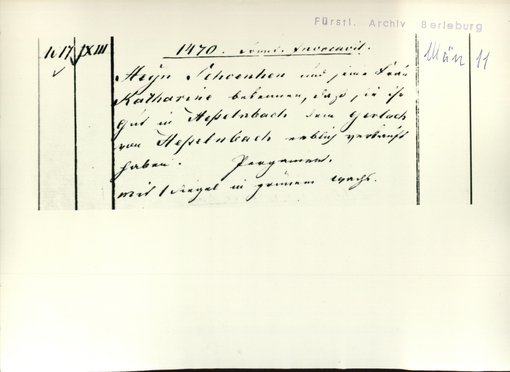 Fürstl. Archiv Berleburg
1470. domi. Invocavit.
März 11
1617 XIII
Heyn Schoenhen und seine Frau
Katharine bekennen, dass sie ihr
Gut in Hesselnbach dem Gerlach
von Hesselnbach erblich verkauft
haben. Pergament.
mit 1 Siegel in grünem Wachs.